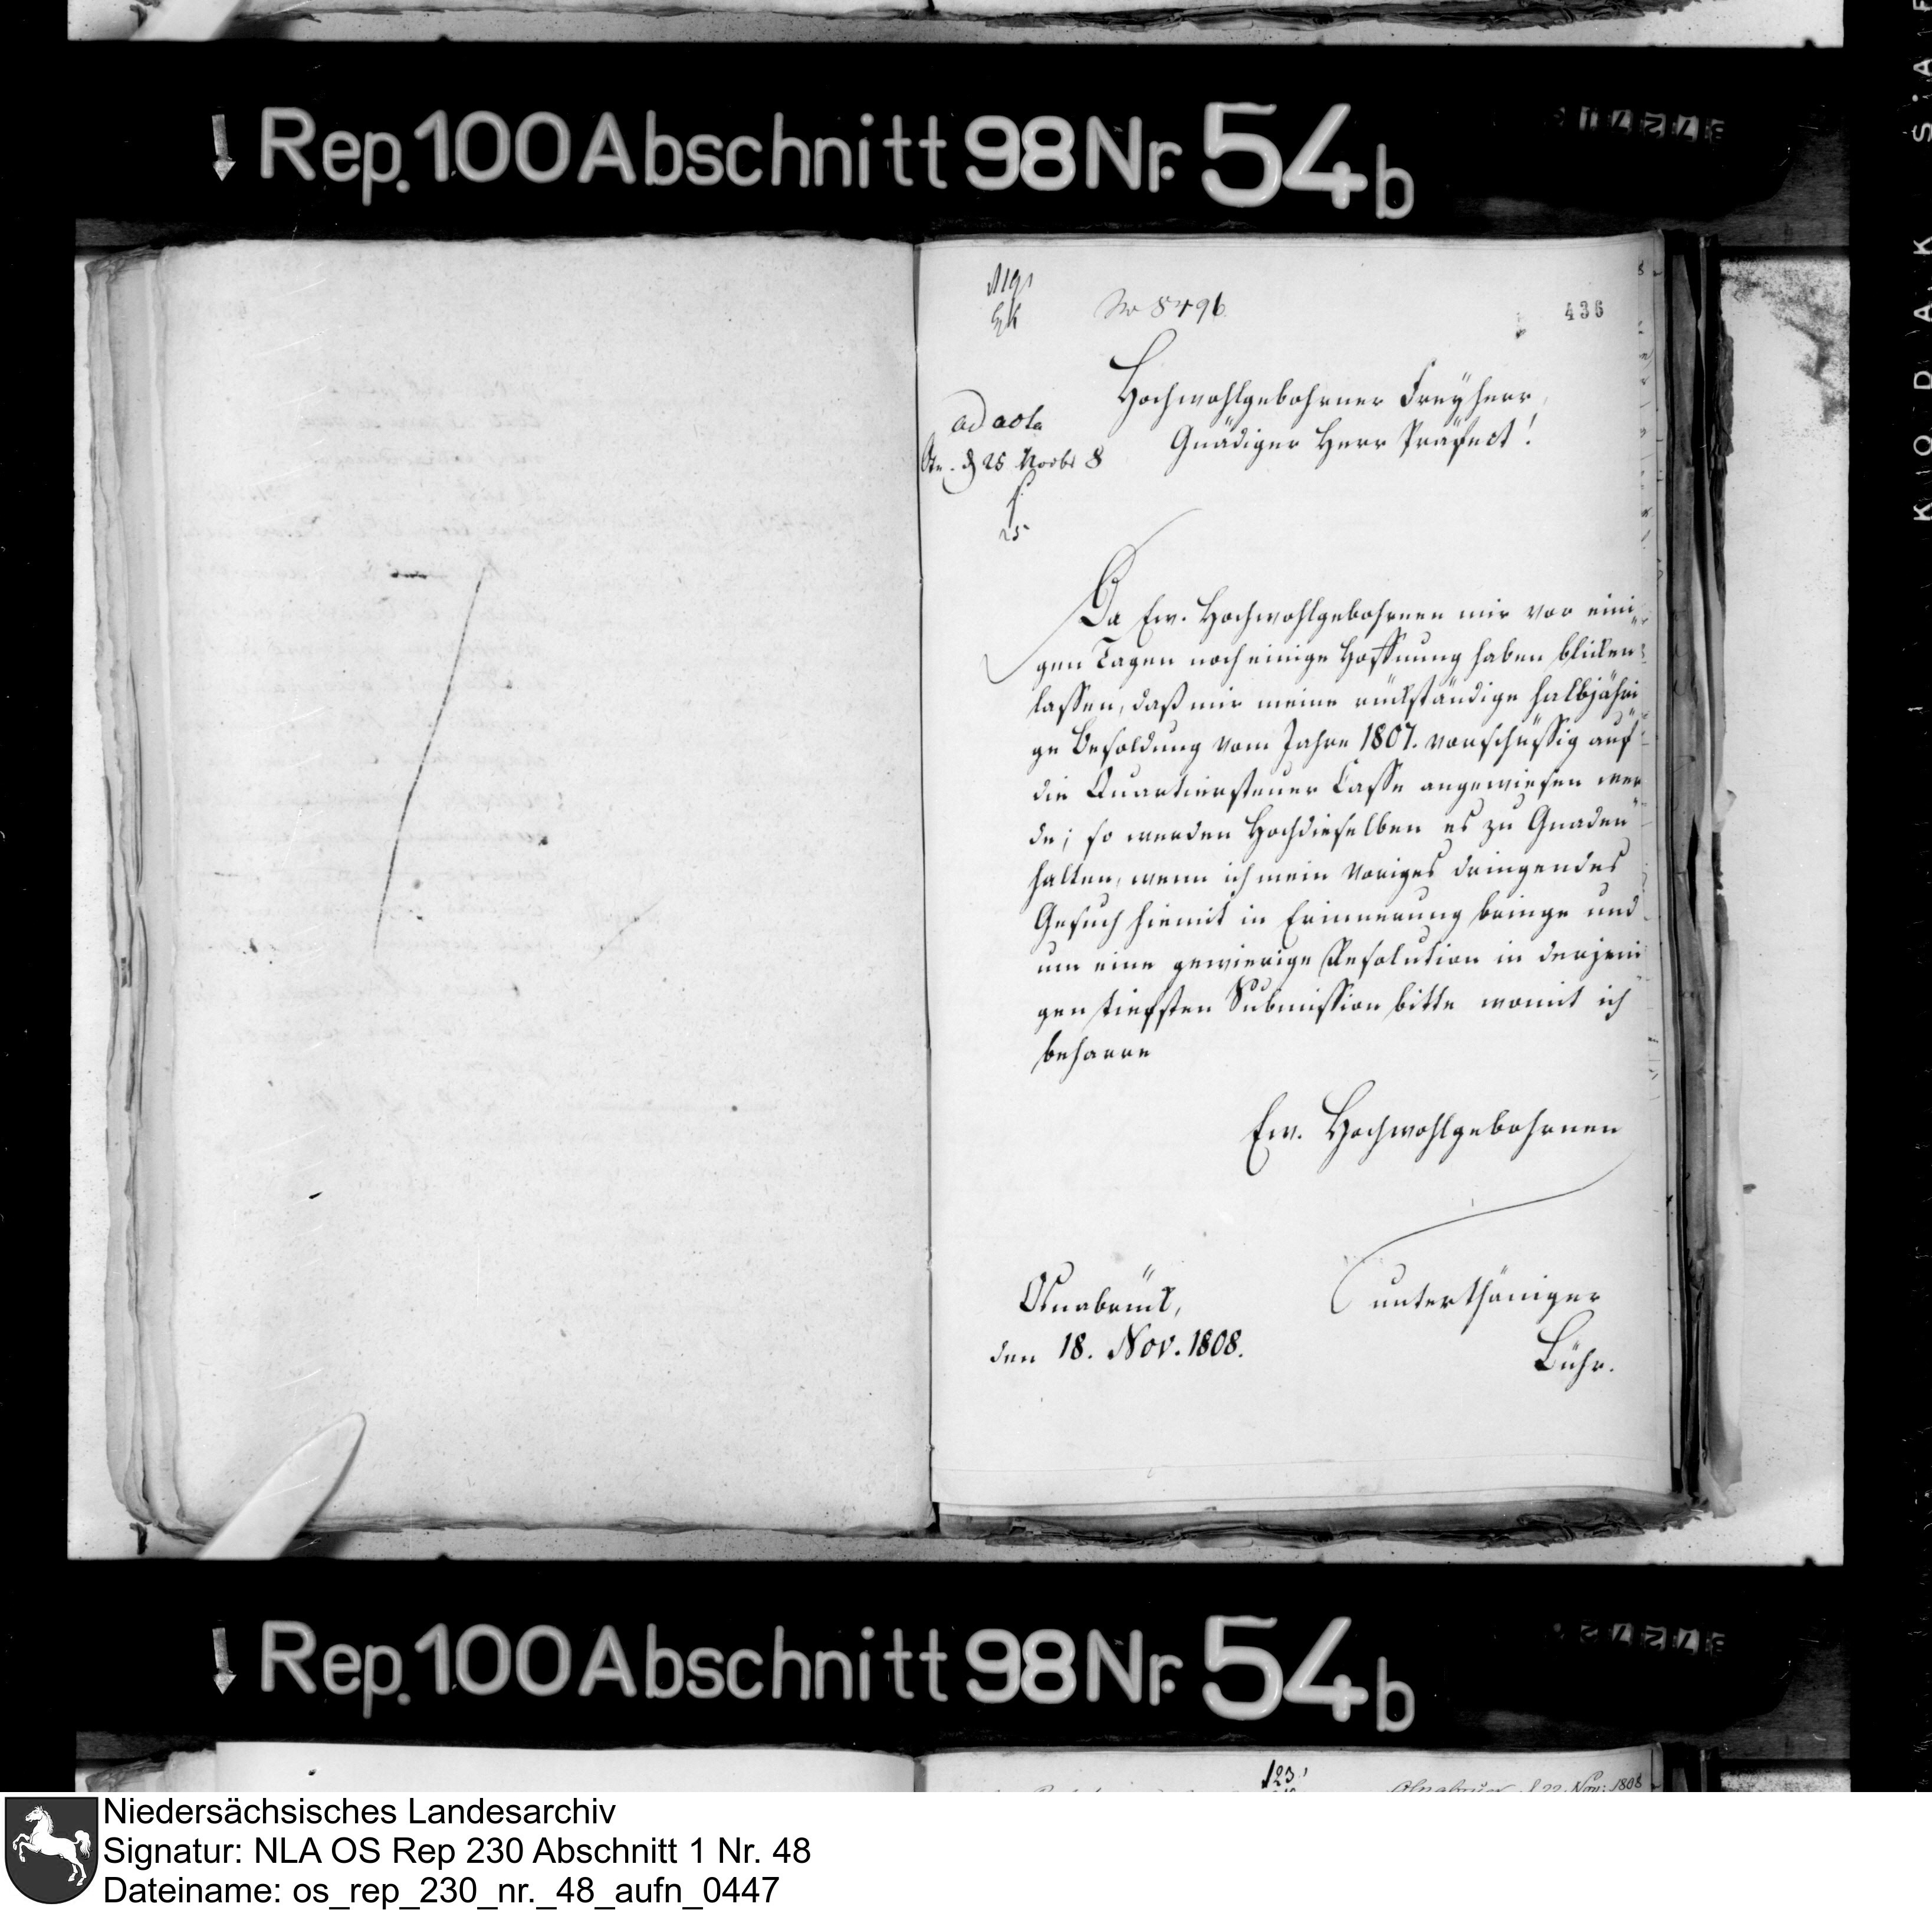 Rep. 100 Abschnitt 98 Nr. 54b
No 8496
436
Hochwohlgebohrner Freyherr
Gnädiger Herr Präfect!
ad acta
d 25 Novbr 8
25
Da Ew. Hochwohlgebohrnen mir vor eini
gen Tagen noch einige Hoffnung haben blicken
lassen, daß mir meine rückständige halbjähri
ge Besoldung vom Jahre 1807. vorschüssig auf
die Quartiersteuer Casse angewiesen wer
de; so werden Hochdieselben es zu Gnaden
halten, wenn ich mein voriges dringendes
Gesuch hiemit in Erinnerung bringe und
um eine gewierige Resolution in derjeni
gen tiefsten Submission bitte womit ich
beharre
Ew. Hochwohlgebohrnen
Osnabrück,
den 18. Nov. 1808.
unterthäniger
Lühr.
Rep. 100 Abschnitt 98 Nr. 54b
123
22 Nov: 1808
KODAK
Niedersächsisches Landesarchiv
Signatur: NLA OS Rep 230 Abschnitt 1 Nr. 48
Dateiname: os_rep_230_nr._48_aufn_0447